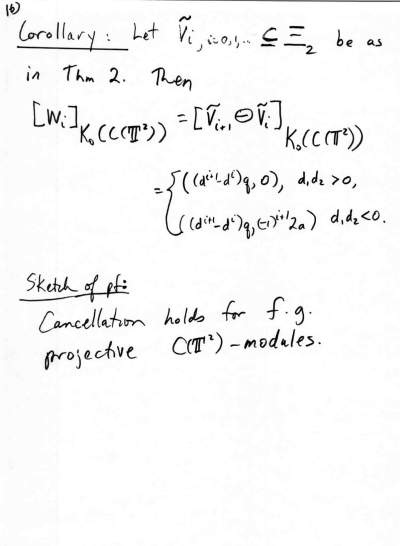 16)
Corollary: Let Ṽ_i, i=0,1,... ⊆ Ξ_2 be as
in Thm 2. Then
[W_i]_{K_0(C(𝕋²))} = [Ṽ_{i+1} ⊖ Ṽ_i]_{K_0(C(𝕋²))}
= { ((d^{i+1}-d^i)q, 0), d_1d_2 > 0,
((d^{i+1}-d^i)q, (-1)^{i+1}2a) d_1d_2 < 0.
Sketch of pf:
Cancellation holds for f.g.
projective C(𝕋²)-modules.